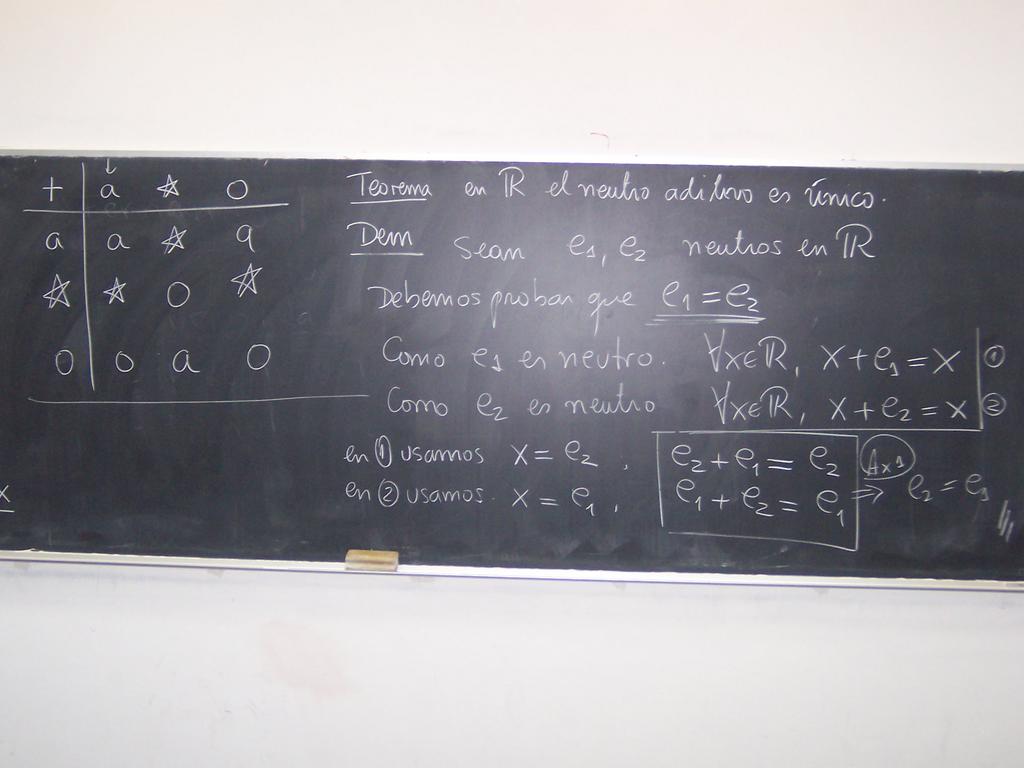 + a ☆ o
a a ☆ a
☆ ☆ o ☆
o o a o
Teorema en ℝ el neutro aditivo es único.
Dem Sean e₁, e₂ neutros en ℝ
Debemos probar que e₁ = e₂
Como e₁ es neutro. ∀x∈ℝ, x + e₁ = x ①
Como e₂ es neutro ∀x∈ℝ, x + e₂ = x ②
en ① usamos x = e₂, e₂ + e₁ = e₂ Ax1
en ② usamos. x = e₁, e₁ + e₂ = e₁ ⇒ e₂ = e₁
x